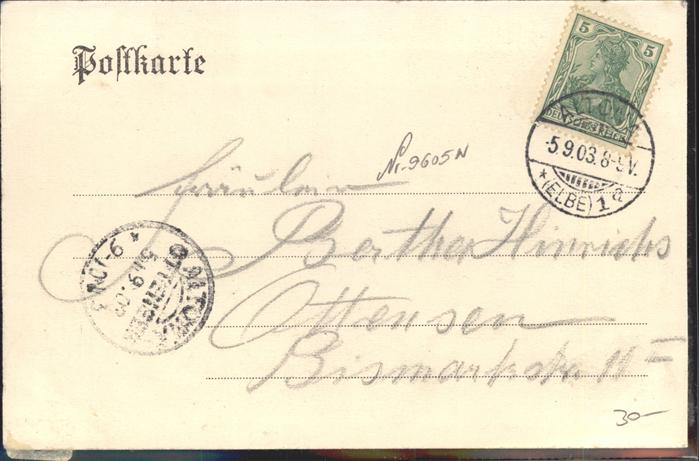 Postkarte
5 5
DEUTSCHES REICH
ALTONA
5.9.03.8-9V.
* (ELBE) 1a
Nr. 9605N
Fräulein
Bertha Hinrichs
Ottensen
Bismarckstr. 11
ALTONA
OTTENSEN
5.9.03
30-